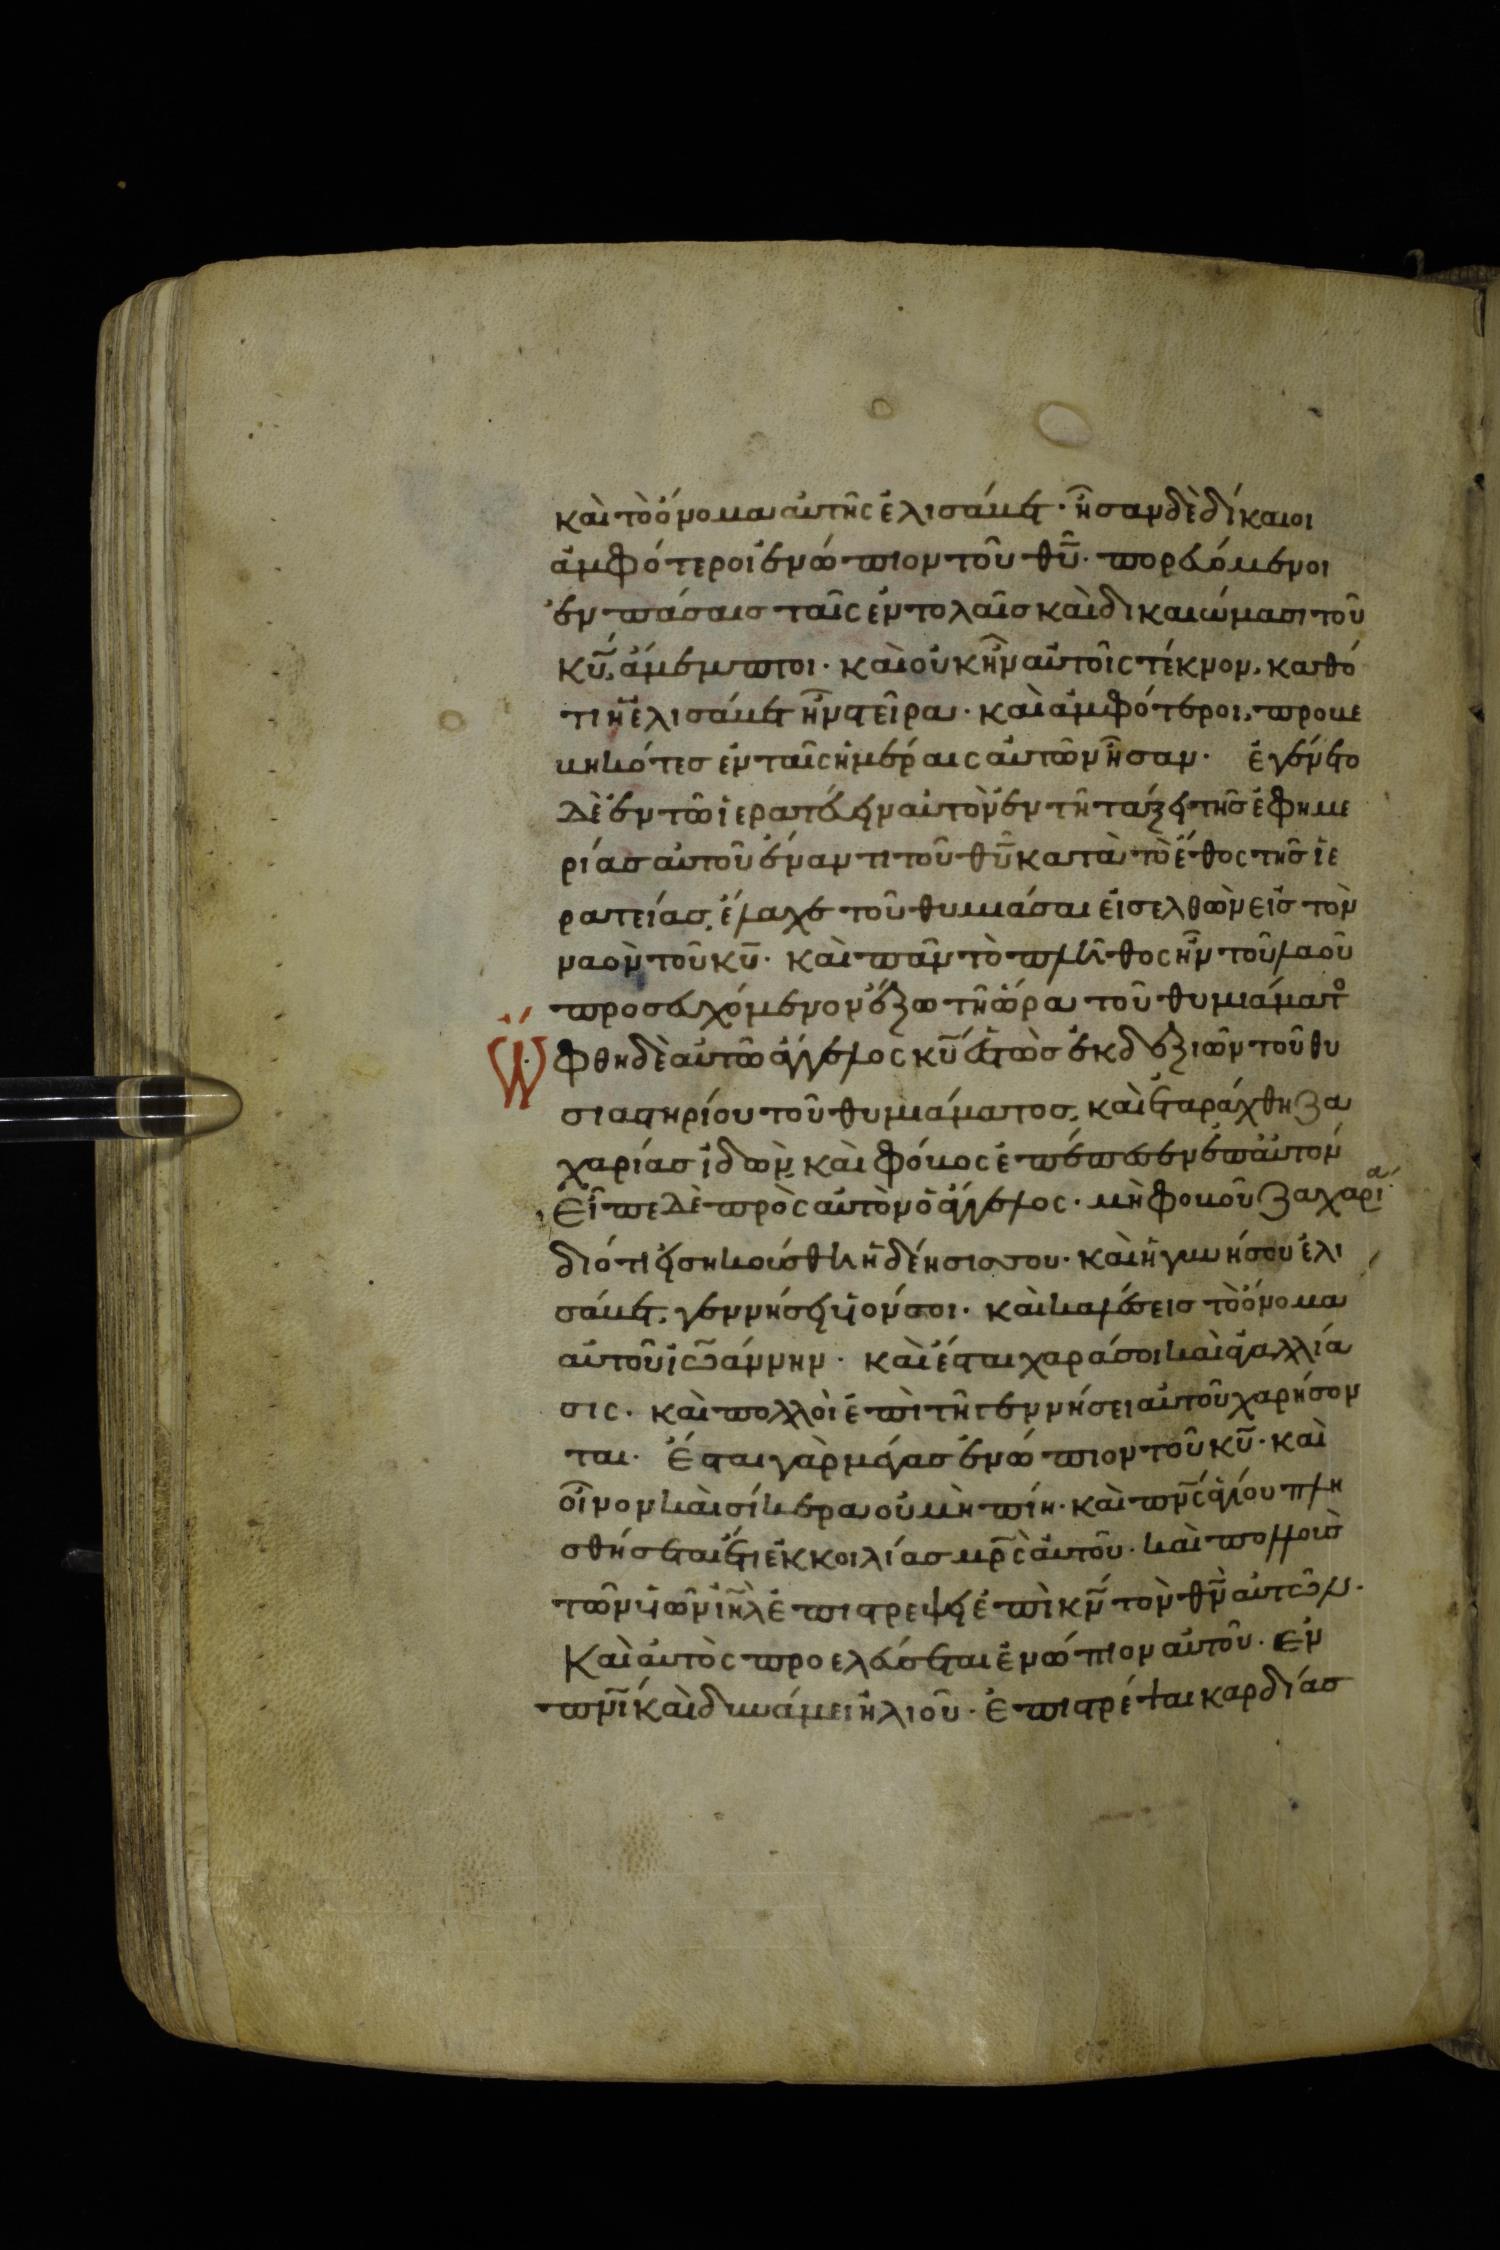 καὶ τὸ ὄνομα αὐτῆς ἐλισάβετ · ἦσαν δὲ δίκαιοι
ἀμφότεροι ἐνώπιον τοῦ θῦ · πορευόμενοι
ἐν πάσαις ταῖς ἐντολαῖς καὶ δικαιώμασι τοῦ
κῦ, ἄμεμπτοι · καὶ οὐκ ἦν αὐτοῖς τέκνον, καθό
τι ἡ ἐλισάβετ ἦν στεῖρα · καὶ ἀμφότεροι, προβε
βηκότες ἐν ταῖς ἡμέραις αὐτῶν ἦσαν · ἐγένετο
δὲ ἐν τῶ ἱερατεύειν αὐτὸν ἐν τῆ τάξει τῆς ἐφημε
ρίας αὐτοῦ ἔναντι τοῦ θῦ κατὰ τὸ ἔθος τῆς ἱε
ρατείας, ἔλαχε τοῦ θυμιάσαι εἰσελθὼν εἰς τὸν
ναὸν τοῦ κῦ · καὶ πᾶν τὸ πλῆθος ἦν τοῦ λαοῦ
προσευχόμενον ἔξω τῆ ὥρα τοῦ θυμιάματο
Ὤφθη δὲ αὐτῶ ἄγγελος κῦ ἑστὼς ἐκ δεξιῶν τοῦ θυ
σιαστηρίου τοῦ θυμιάματος, καὶ ἐταράχθη ζα
χαρίας ἰδὼν, καὶ φόβος ἐπέπεσεν ἐπ αὐτόν
Εἶπε δὲ πρὸς αὐτὸν ὁ ἄγγελος · μὴ φοβοῦ ζαχαρία ·
διότι εἰσηκούσθη ἡ δέησις σου · καὶ ἡ γυνή σου ἐλι
σάβετ, γεννήσει υἱόν σοι · καὶ καλέσεις τὸ ὄνομα
αὐτοῦ ἰωάννην · καὶ ἔσται χαρά σοι καὶ ἀγαλλία
σις · καὶ πολλοὶ ἐπὶ τῆ γεννήσει αὐτοῦ χαρήσον
ται · ἔσται γὰρ μέγας ἐνώπιον τοῦ κῦ · καὶ
οἶνον καὶ σίκερα οὐ μὴ πίη · καὶ πνς ἁγίου πλη
σθήσεται ἔτι ἐκ κοιλίας μρς αὐτοῦ · καὶ πολλοὺς
τῶν υἱῶν ἰηλ ἐπιστρέψει ἐπὶ κν τὸν θν αὐτῶν ·
Καὶ αὐτὸς προελεύσεται ἐνώπιον αὐτοῦ · ἐν
πνι καὶ δυνάμει ἡλιοῦ · ἐπιστρέψαι καρδίας